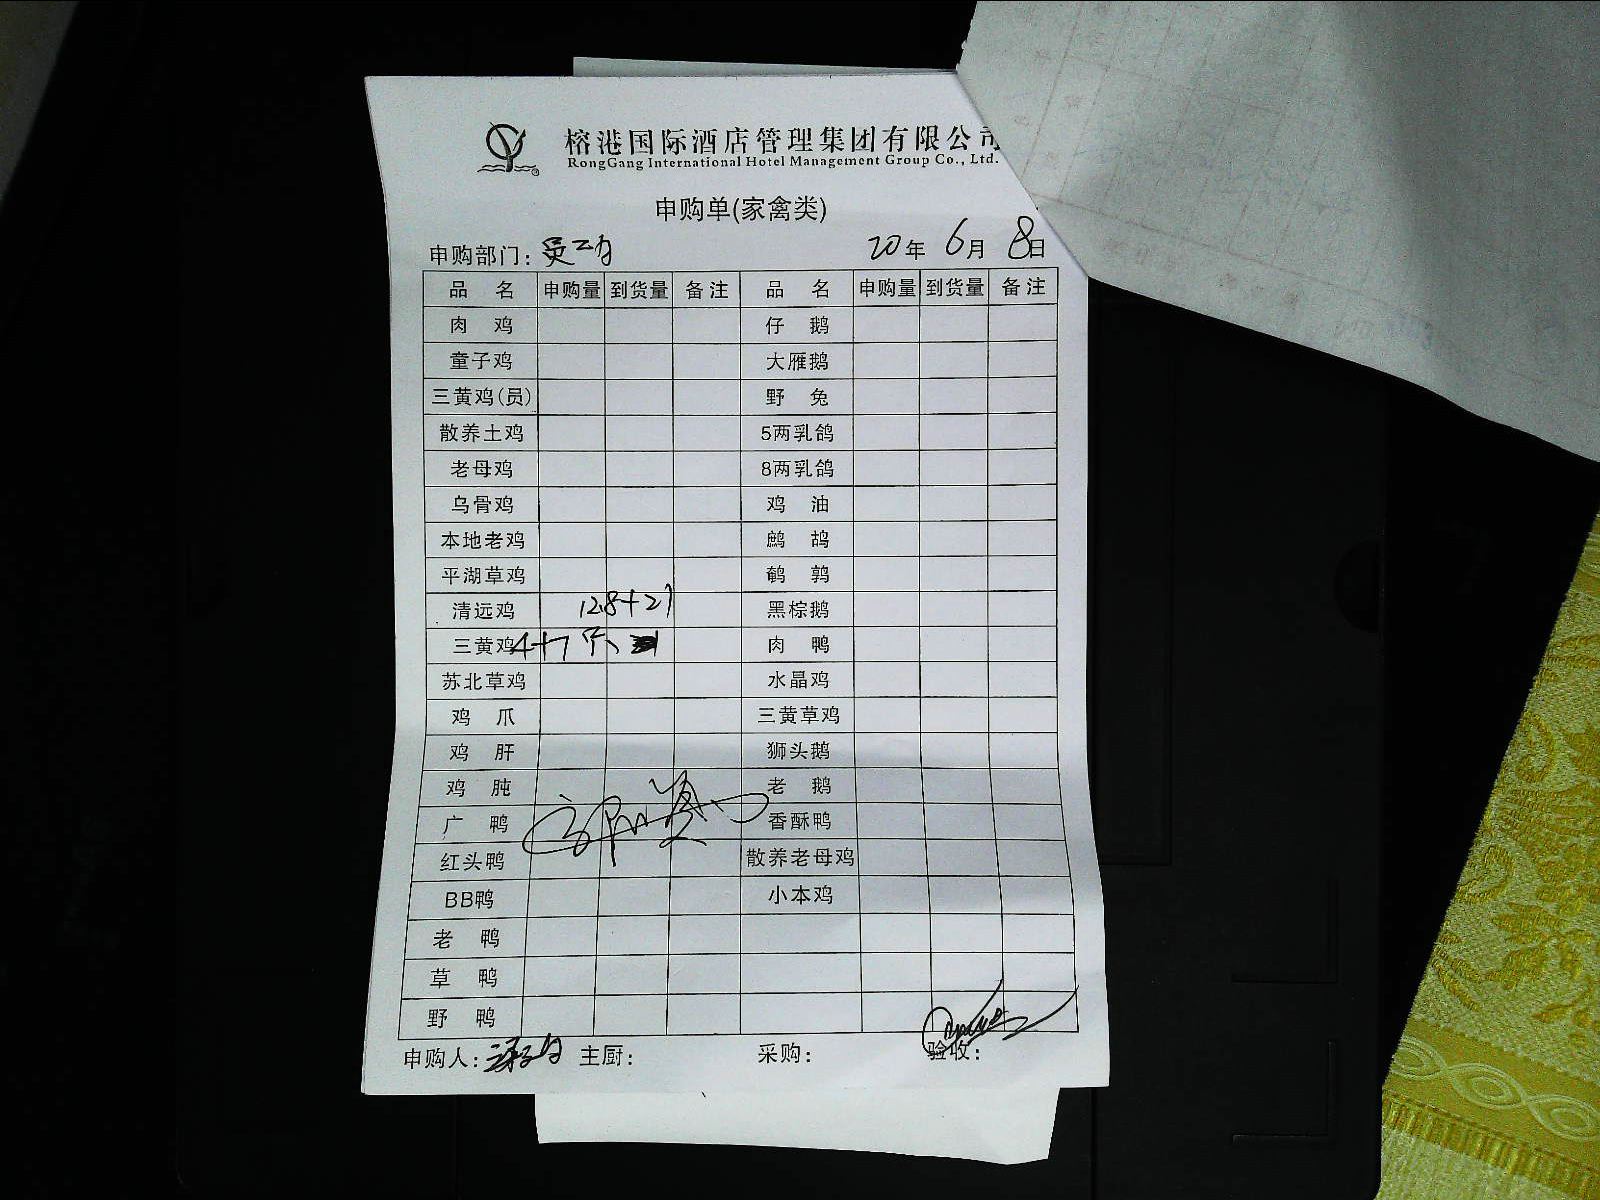 榕港国际酒店管理集团有限公司
RongGang International Hotel Management Group Co., Ltd.
申购单(家禽类)
申购部门: 20年 6月 8日
品 名 申购量 到货量 备注 品 名 申购量 到货量 备注
肉 鸡 仔 鹅
童子鸡 大雁鹅
三黄鸡(员) 野 兔
散养土鸡 5两乳鸽
老母鸡 8两乳鸽
乌骨鸡 鸡 油
本地老鸡 鹧 鸪
平湖草鸡 鹌 鹑
清远鸡 黑棕鹅
三黄鸡 肉 鸭
苏北草鸡 水晶鸡
鸡 爪 三黄草鸡
鸡 肝 狮头鹅
鸡 肫 老 鹅
广 鸭 香酥鸭
红头鸭 散养老母鸡
BB鸭 小本鸡
老 鸭
草 鸭
野 鸭
申购人: 主厨: 采购: 验收: